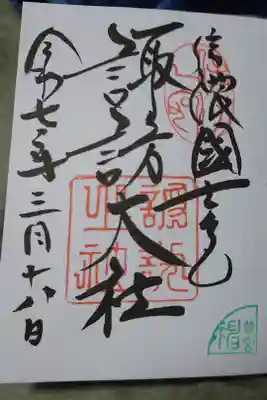 信濃國一之宮
諏訪大社
令和七年三月十八日